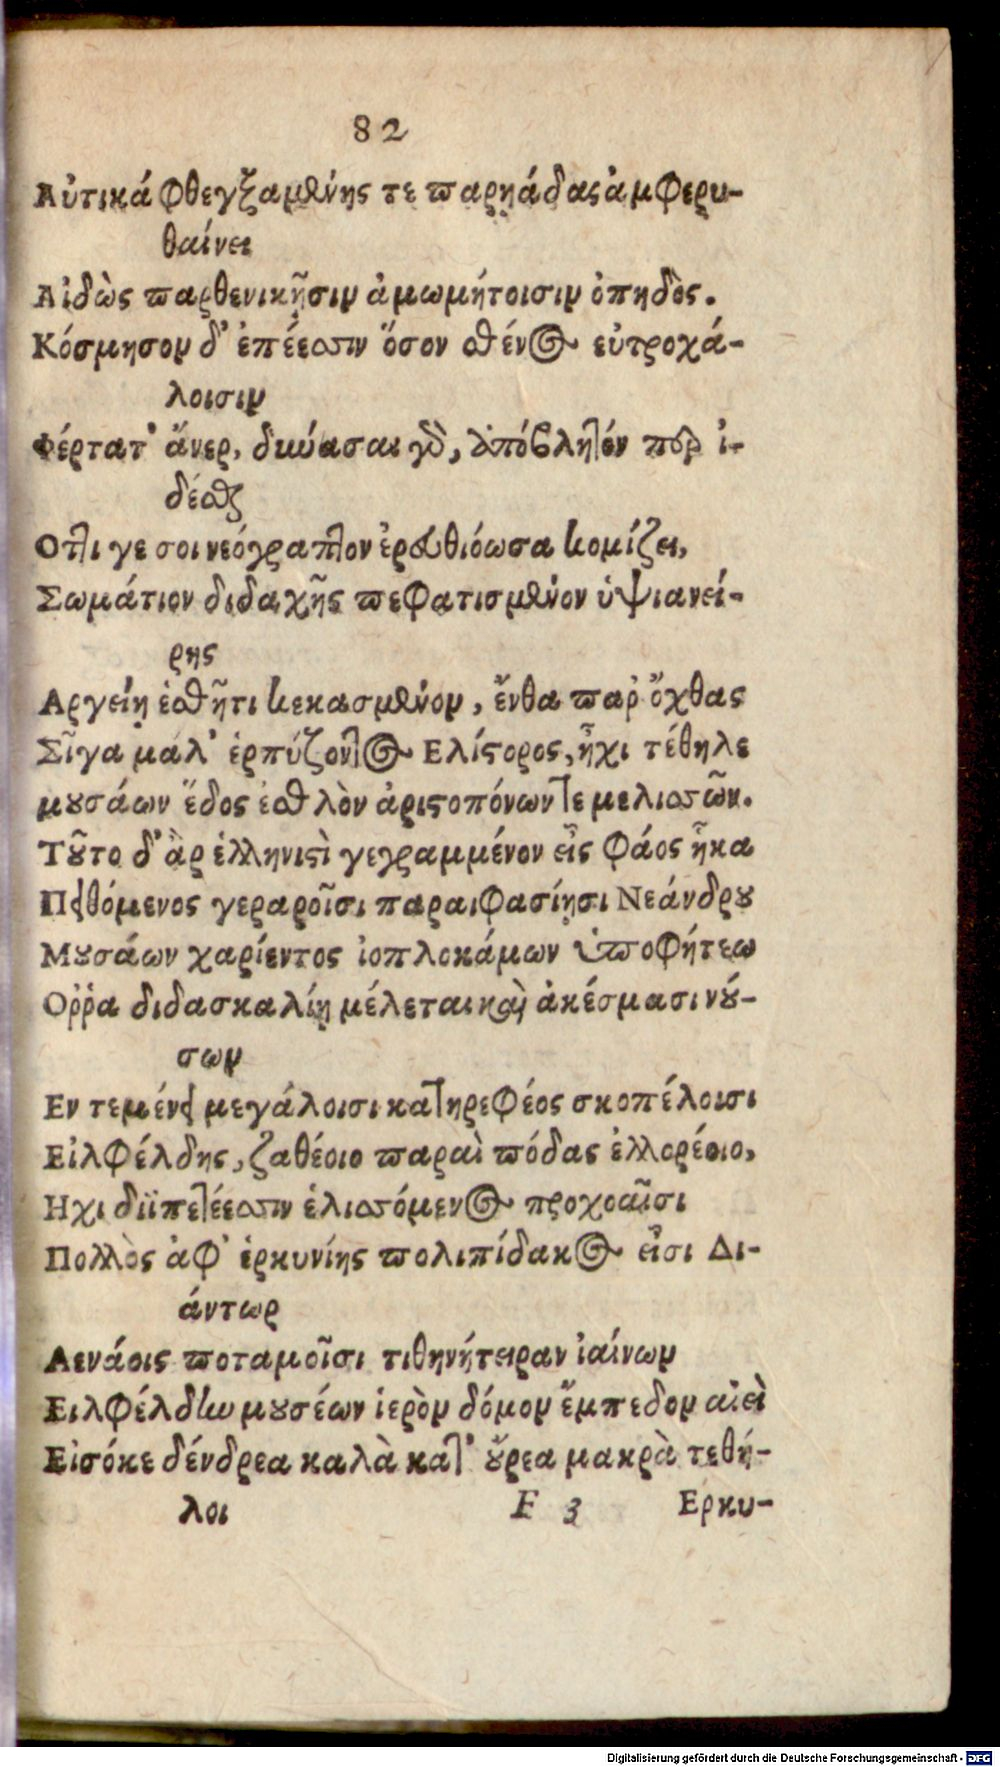 82
Αὐτικά φθεγξαμένης τε παρηάδας ἀμφερυ-
θαίνει
Αἰδὼς παρθενικῇσιν ἀμωμήτοισιν ὀπηδὸς.
Κόσμησον δ' ἐπέεσσιν ὅσον σθένος εὐτροχά-
λοισιν
Φέρτατ' ἄνερ, δύνασαι γὸ, ἀπόβλητόν περ ἰ-
δέσθαι
Οττι γε σοι νεόγραπτον ἐρευθιόωσα κομίζει,
Σωμάτιον διδαχῆς πεφατισμένον ὑψιανεί-
ρης
Αργείῃ ἐσθῆτι κεκασμένον, ἔνθα παρ' ὄχθας
Σῖγα μάλ' ἑρπύζοντος Ελίστορος, ἧχι τέθηλε
μουσάων ἕδος ἐσθλὸν ἀριστοπόνων τε μελισσῶν.
Τοῦτο δ' ἂρ ἑλληνιστὶ γεγραμμένον εἰς φάος ἧκα
Πειθόμενος γεραροῖσι παραιφασίῃσι Νεάνδρου
Μουσάων χαρίεντος ἰοπλοκάμων ὑποφήτεω
Οῤῥα διδασκαλίῃ μέλεται καὶ ἀκέσμασι νού-
σων
Εν τεμένει μεγάλοισι κατηρεφέος σκοπέλοισι
Εἰλφέλδης, ζαθέοιο παραὶ πόδας ἐλλορέοιο,
Ηχι διϊπετέεσσιν ἑλισσόμενος προχοαῖσι
Πολλὸς ἀφ' ἑρκυνίης πολιπίδακος εἶσι Δι-
άντωρ
Αενάοις ποταμοῖσι τιθηνήτειραν ἰαίνων
Ειλφέλδην μουσέων ἱερὸν δόμον ἔμπεδον αἰεὶ
Εἰσόκε δένδρεα καλὰ κατ' οὔρεα μακρὰ τεθή-
λοι
F 3
Ερκυ-
Digitalisierung gefördert durch die Deutsche Forschungsgemeinschaft - DFG